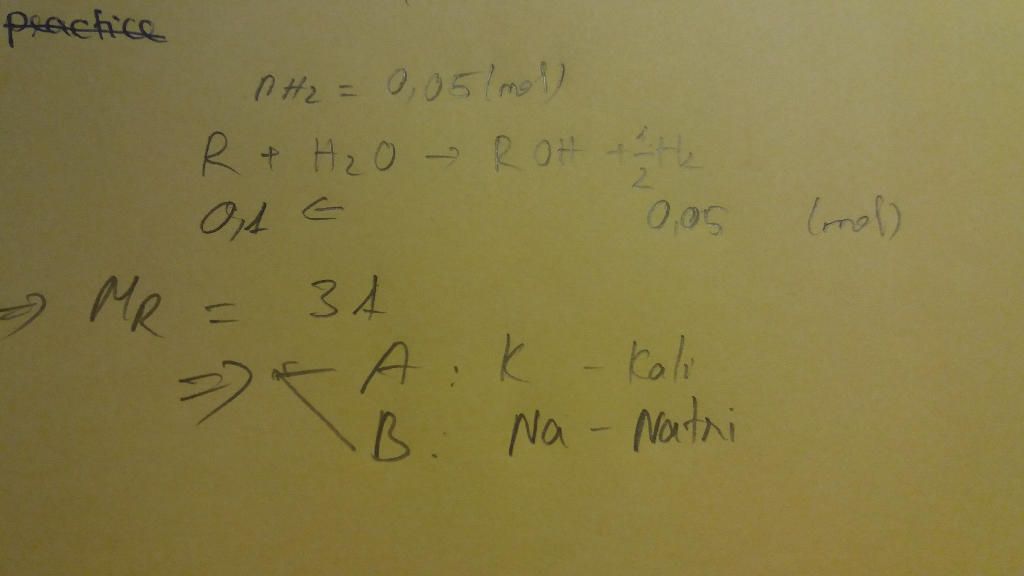 practice
nH2 = 0,05 (mol)
R + H2O → ROH + 1/2 H2
0,1 ← 0,05 (mol)
⇒ MR = 31
⇒ A : K - Kali
B : Na - Natri